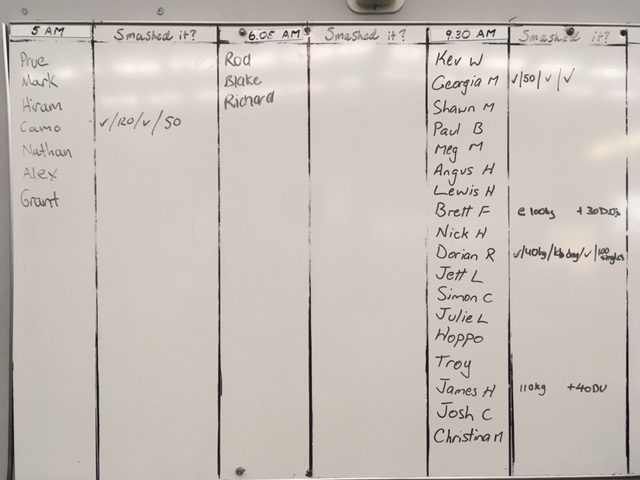 5 AM Smashed it? 6.05 AM Smashed it? 9.30 AM Smashed it?
Prue Rod Kev W
Mark Blake Georgia M √/50/√/√
Hiram Richard Shawn M
Camo √/120/√/50 Paul B
Nathan Meg M
Alex Angus H
Grant Lewis H
Brett F @ 100kg +30DU's
Nick H
Dorian R √/40kg/kb dng/√/100 singles
Jett L
Simon C
Julie L
Hoppo
Troy
James H 110kg +40DU
Josh C
Christina M